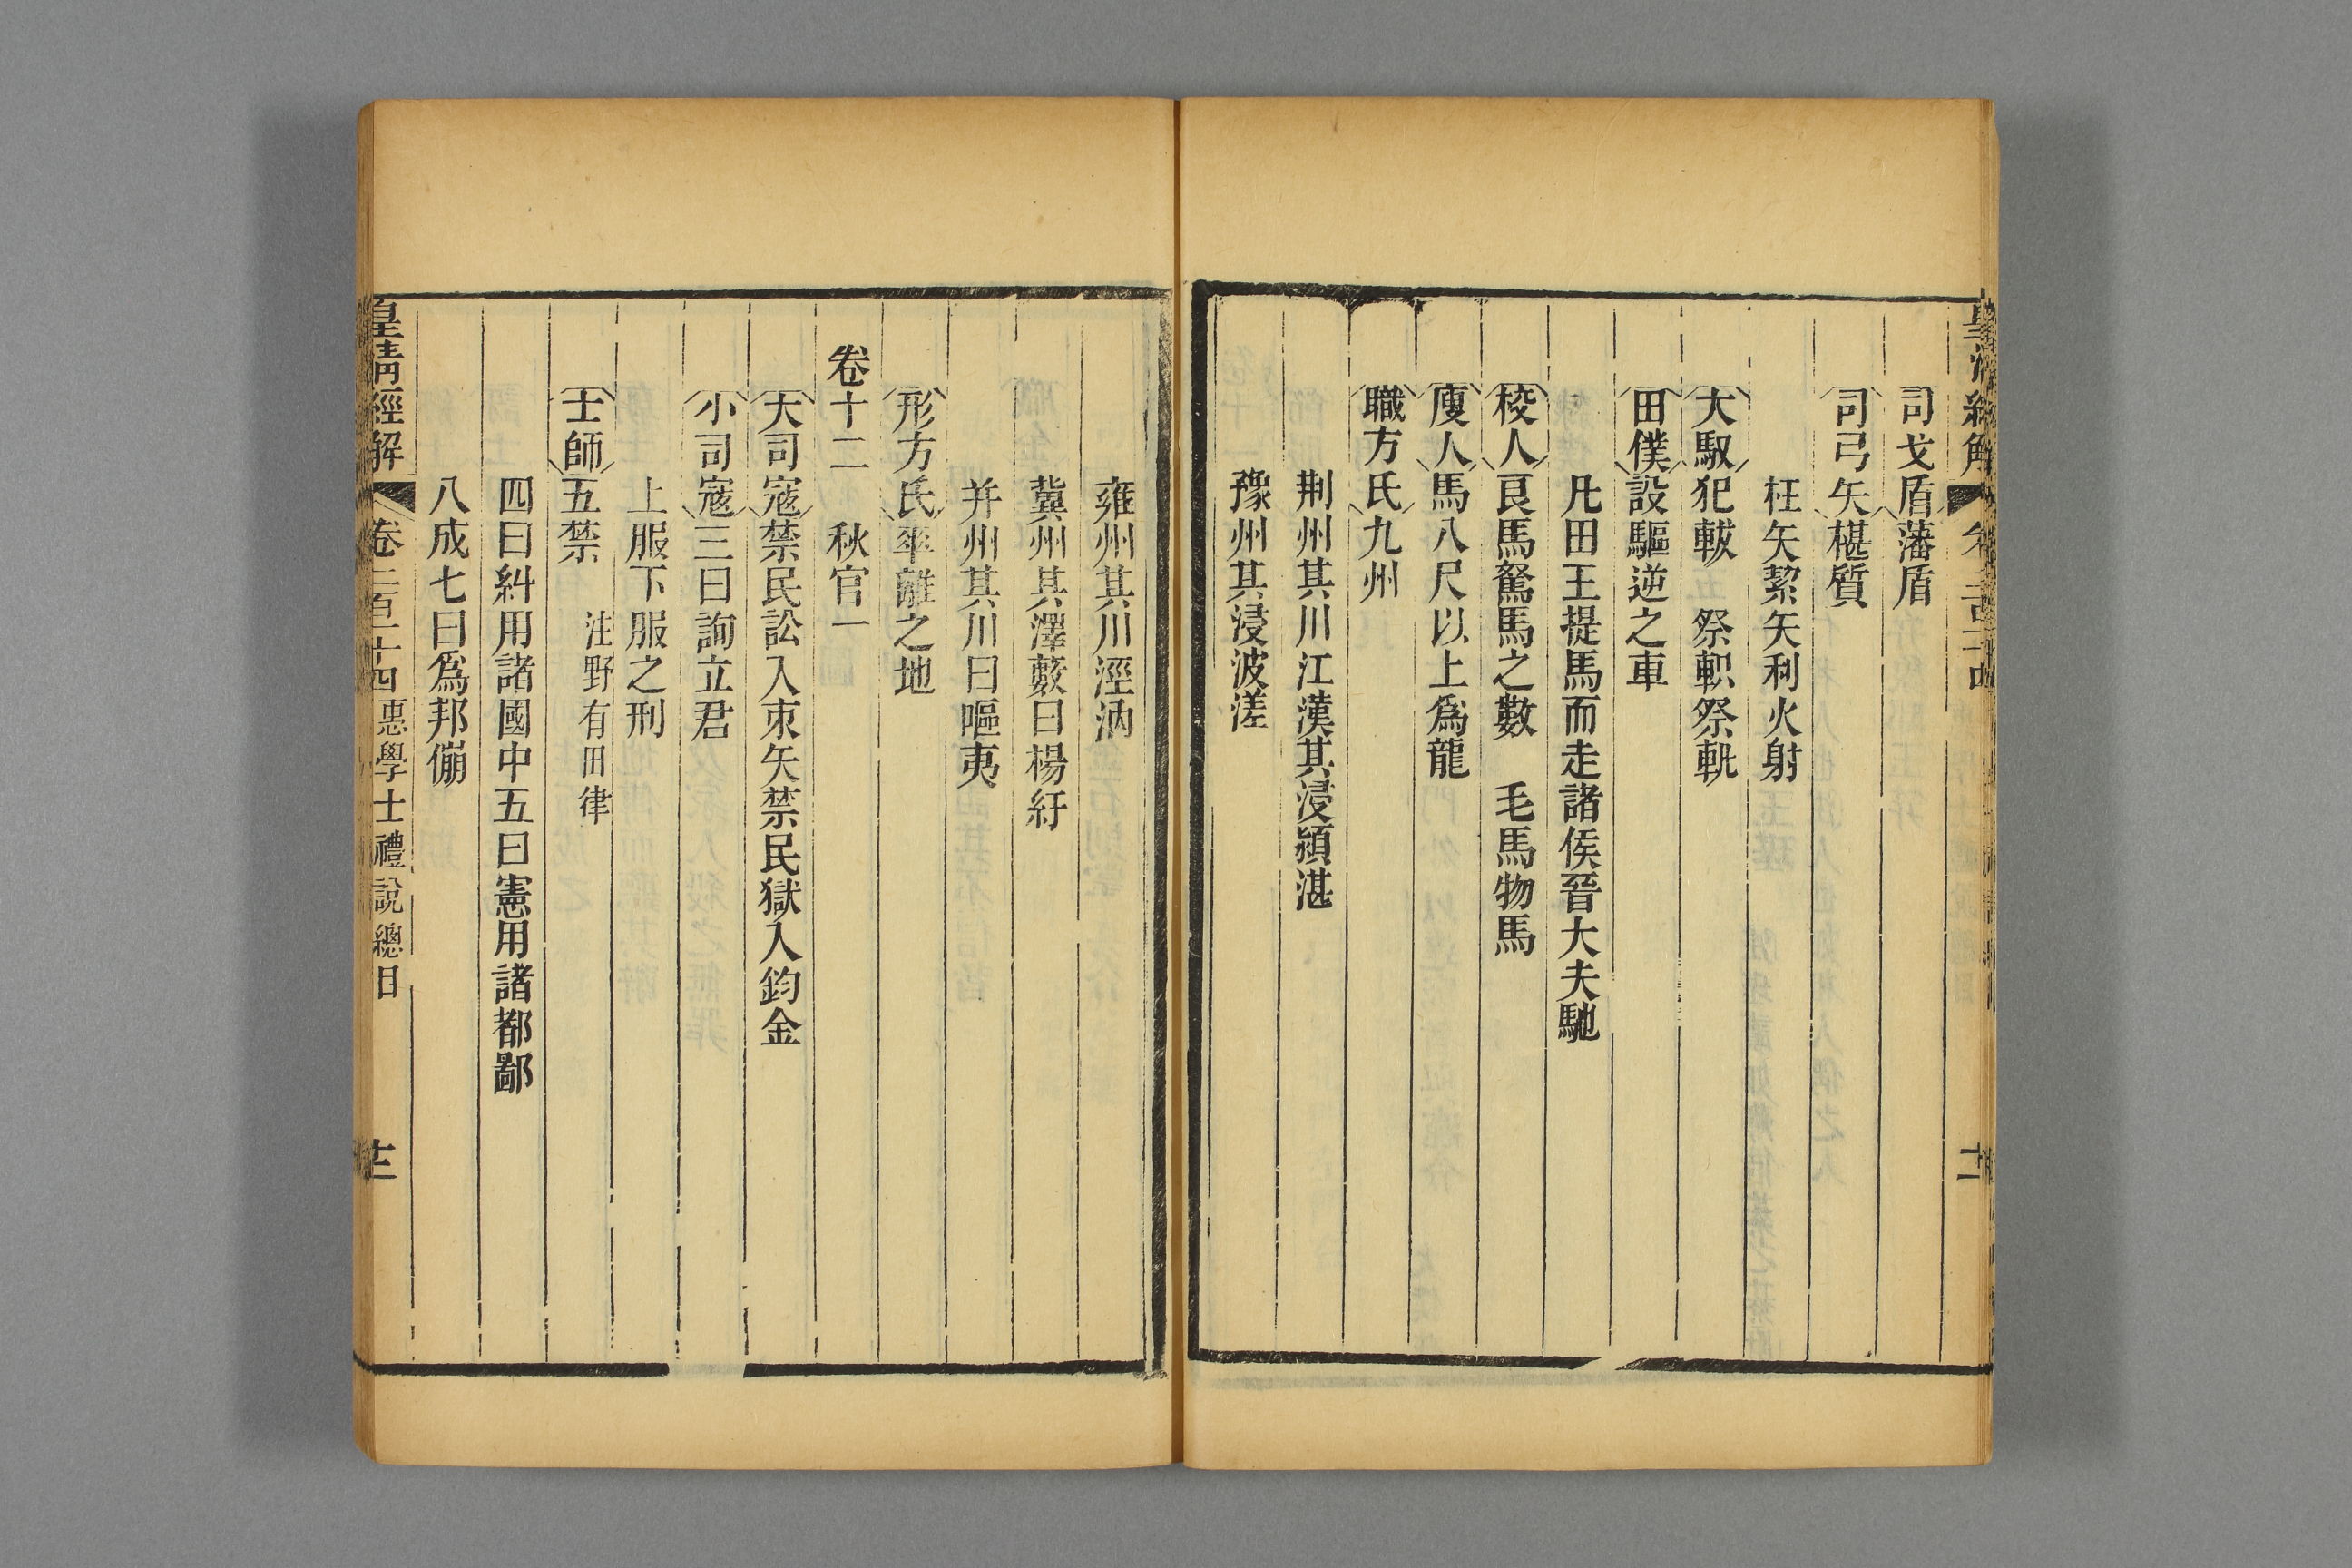 司戈盾藩盾
司弓矢椹質
枉矢絜矢利火射
大馭犯軷　祭軹祭軓
田僕設驅逆之車
凡田王提馬而走諸侯晉大夫馳
校人良馬駑馬之數　毛馬物馬
廋人馬八尺以上爲龍
職方氏九州
荆州其川江漢其浸潁湛
豫州其浸波溠
雍州其川涇汭
冀州其澤藪曰楊紆
并州其川曰嘔夷
形方氏華離之地
卷十二　秋官一
大司寇禁民訟入束矢禁民獄入鈞金
小司寇三曰詢立君
上服下服之刑
士師五禁　注野有田律
四曰糾用諸國中五曰憲用諸都鄙
八成七曰爲邦傰
皇清經解　卷二百十四惠學士禮說總目　十二